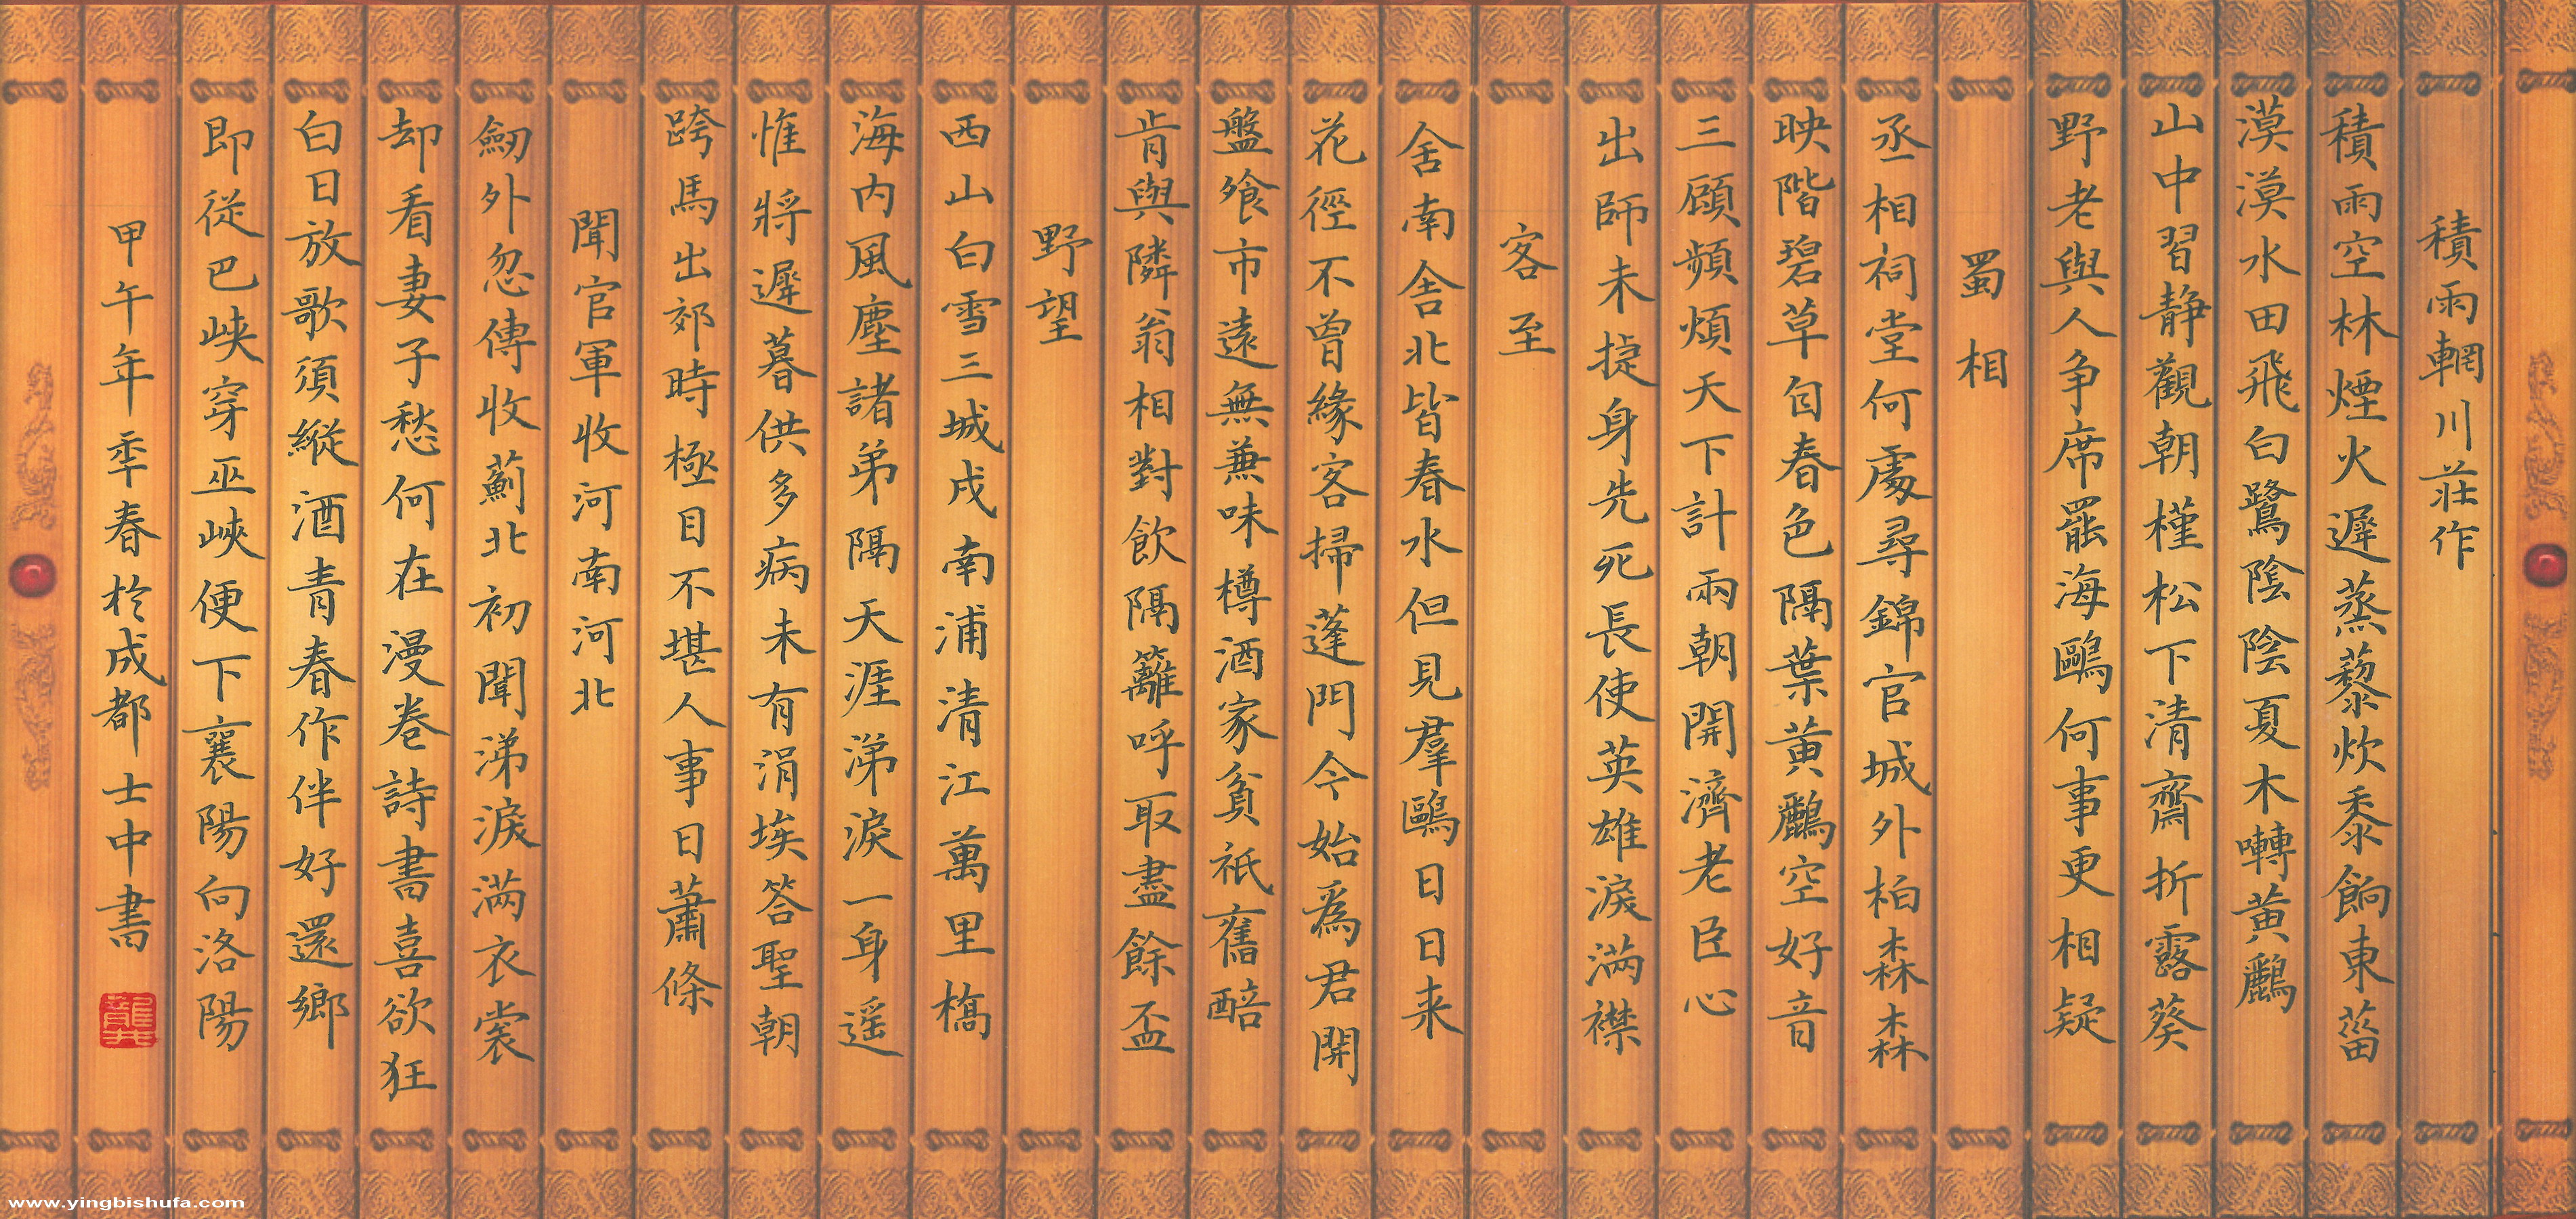 積雨輞川莊作
積雨空林煙火遲蒸藜炊黍餉東菑
漠漠水田飛白鷺陰陰夏木囀黃鸝
山中習静觀朝槿松下清齋折露葵
野老與人争席罷海鷗何事更相疑
蜀相
丞相祠堂何處尋錦官城外柏森森
映階碧草自春色隔葉黄鸝空好音
三顧頻煩天下計兩朝開濟老臣心
出師未捷身先死長使英雄淚滿襟
客至
舍南舍北皆春水但見羣鷗日日来
花徑不曾緣客掃蓬門今始爲君開
盤飧市遠無兼味樽酒家貧衹舊醅
肯與隣翁相對飲隔籬呼取盡餘盃
野望
西山白雪三城戍南浦清江萬里橋
海内風塵諸弟隔天涯涕淚一身遥
惟將遲暮供多病未有涓埃答聖朝
跨馬出郊時極目不堪人事日蕭條
聞官軍收河南河北
劒外忽傳收薊北初聞涕淚滿衣裳
却看妻子愁何在漫卷詩書喜欲狂
白日放歌須縱酒青春作伴好還鄉
即從巴峽穿巫峽便下襄陽向洛陽
甲午年季春於成都士中書
龔
www.yingbishufa.com